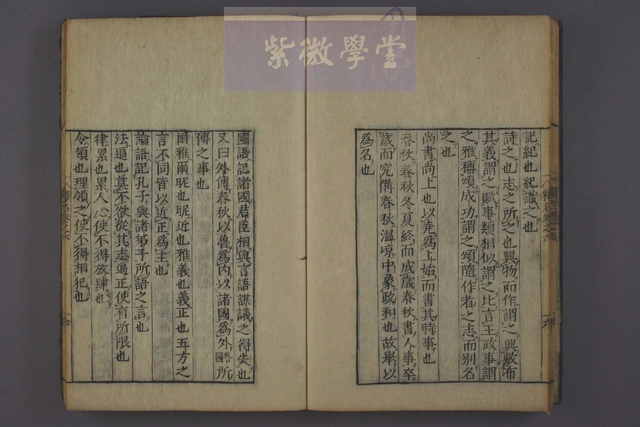 紫微學堂
記紀也紀識之也
詩之也志之所之也興物而作謂之興敷布
其義謂之賦事類相似謂之比言王政事謂
之雅稱頌成功謂之頌隨作者之志而別名
之也
尚書尚上也以堯為上始而書其時事也
春秋春秋冬夏終而成歲春秋書人事卒
歲而究備春秋溫涼中象政和也故舉以
為名也
國語記諸國君臣相與言語謀議之得失也
又曰外傳春秋以魯為內以諸國為外外國所
傳之事也
爾雅爾昵也昵近也雅義也義正也五方之
言不同皆以近正為主也
論語記孔子與諸弟子所語之言也
法逼也莫不欲從其志逼正使有所限也
律累也累人心使不得放肆也
令領也理領之使不得相犯也